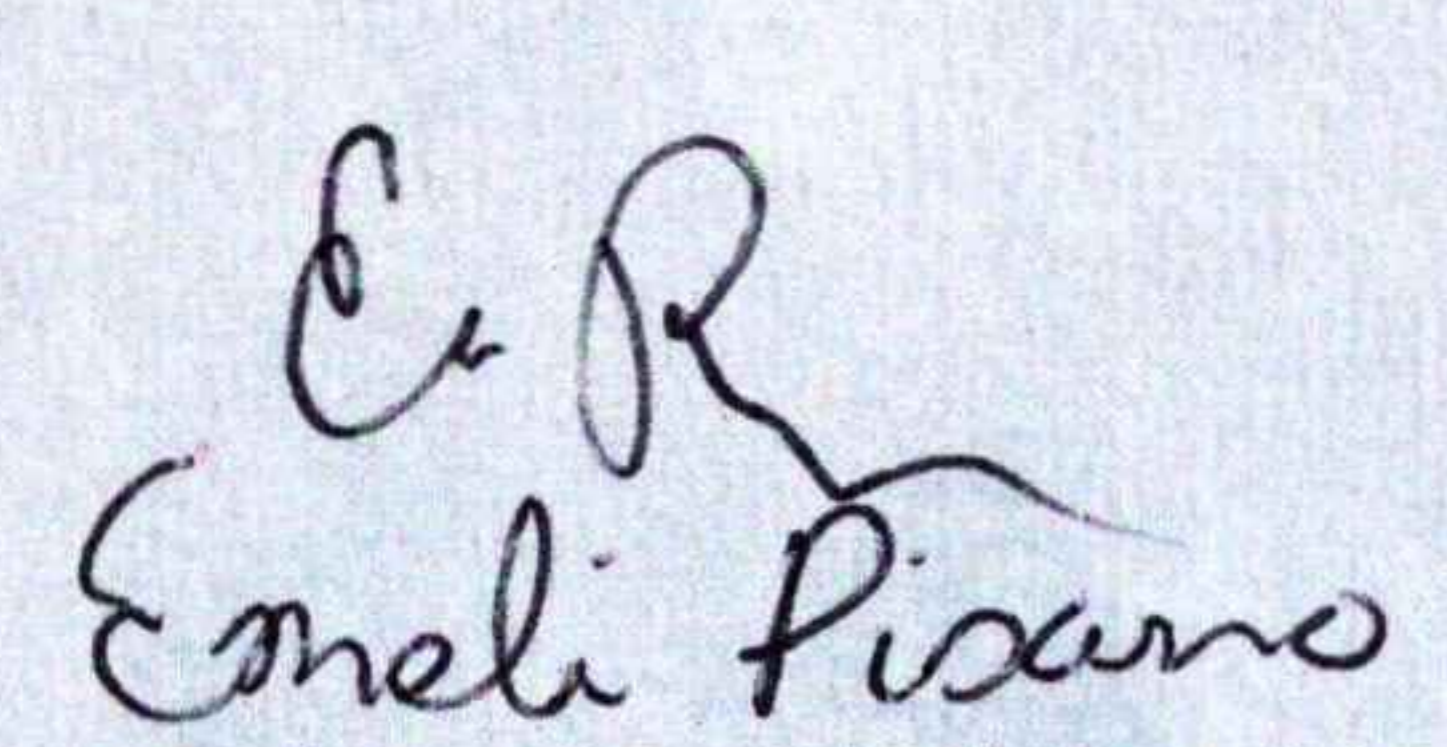 E. R
Emeli Pisano